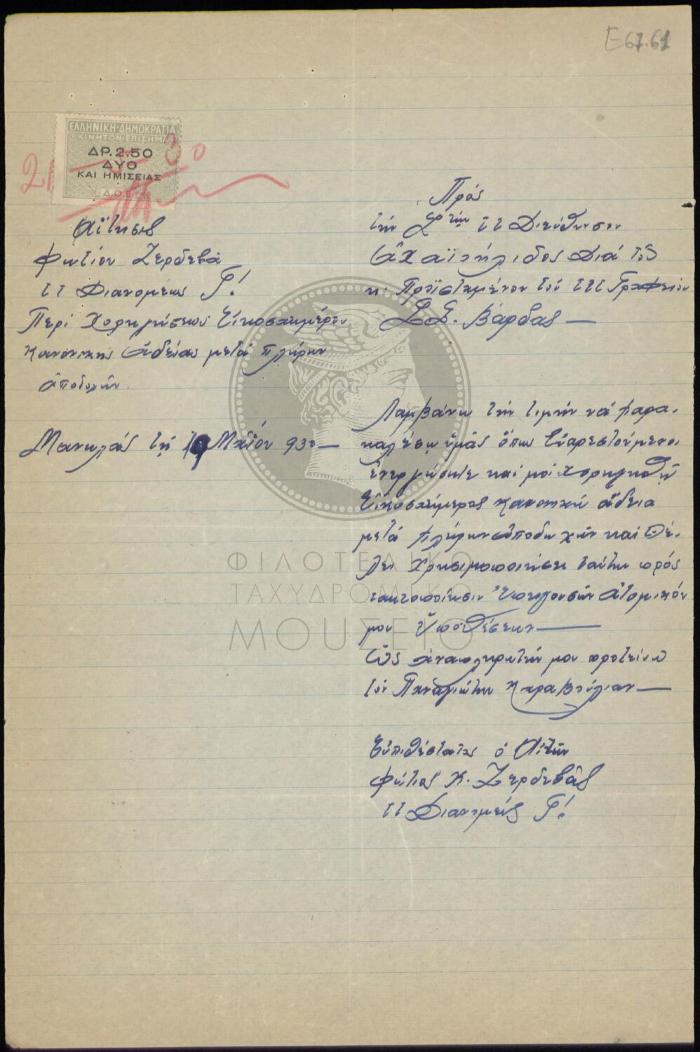 Ε67.61
ΕΛΛΗΝΙΚΗ ΔΗΜΟΚΡΑΤΙΑ
ΚΙΝΗΤΟΝ ΕΠΙΣΗΜΑ
ΔΡ. 2.50
ΔΥΟ
ΚΑΙ ΗΜΙΣΕΙΑΣ
Αἴτησις
Φωτίου Ζερδεβᾶ
ΤΤ Διανομέως Γ!
Περί Χορηγήσεως Εἰκοσαημέρου
κανονικῆς ἀδείας μετά πλήρων
ἀποδοχῶν
Μανωλάς τῇ 19 Μαΐου 930
Πρός
τήν ΤΤ Διεύθυνσιν
Ἀχαϊοήλιδος Διά τοῦ
κ. Προϊσταμένου τοῦ ΤΤΤ Γραφείου
Σ.Σ. Βάρδας
Λαμβάνω τήν τιμήν νά παρα-
καλέσω ὑμᾶς ὅπως Εὐαρεστούμενοι
ἐνεργήσητε καί μοί χορηγηθῇ
Εἰκοσαήμερος κανονική ἄδεια
μετά πλήρων ἀποδοχῶν καί Θέ-
λει χρησιμοποιήσει ταύτην πρός
τακτοποίησιν Ἐπειγουσῶν ἀτομικῶν
μου Ὑποθέσεων
Ὡς ἀναπληρωτήν μου προτείνω
τόν Παναγιώτην Καραβούλιαν
Εὐπειθέστατος ὁ Αἰτῶν
Φώτιος Κ. Ζερδεβᾶς
ΤΤ Διανομεύς Γ!
ΦΙΛΟΤΕΛΙΚΟ
ΤΑΧΥΔΡΟΜΙΚΟ
ΜΟΥΣΕΙΟ